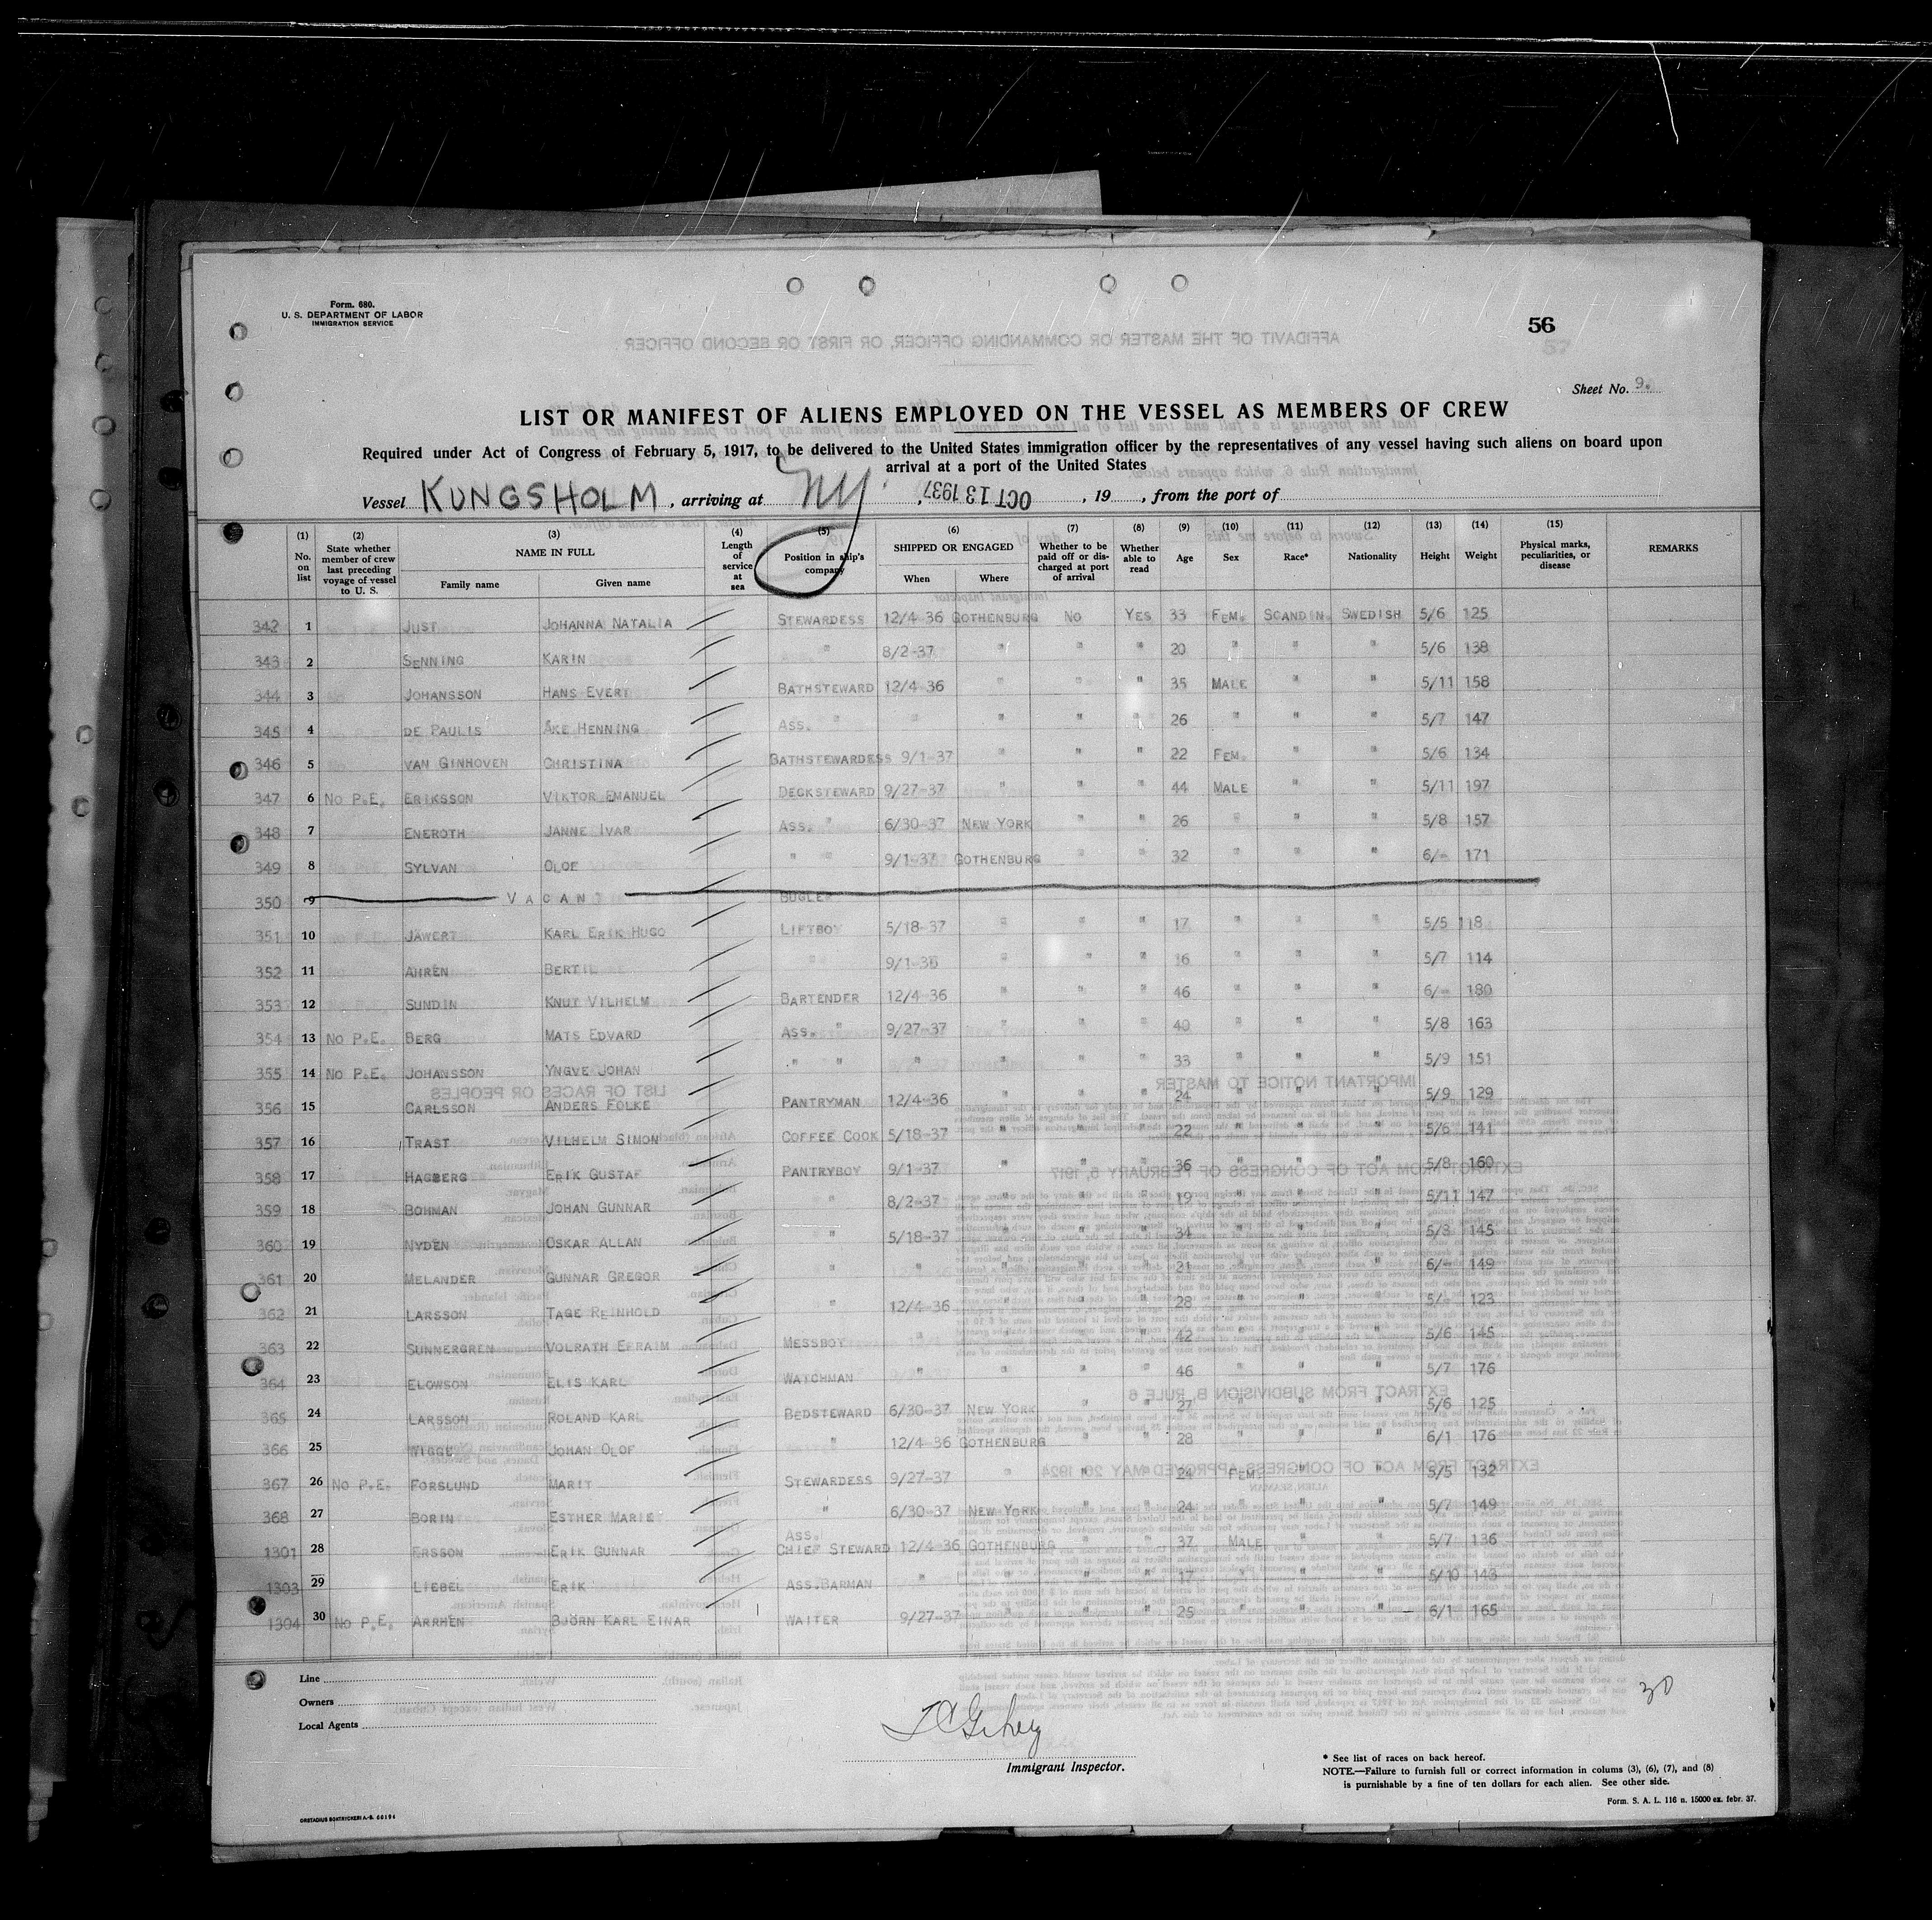 Form. 680.
U. S. DEPARTMENT OF LABOR
IMMIGRATION SERVICE
56
57
AFFIDAVIT OF THE MASTER OR COMMANDING OFFICER, OR FIRST OR SECOND OFFICER
Sheet No. 9.
LIST OR MANIFEST OF ALIENS EMPLOYED ON THE VESSEL AS MEMBERS OF CREW
Required under Act of Congress of February 5, 1917, to be delivered to the United States immigration officer by the representatives of any vessel having such aliens on board upon
arrival at a port of the United States
Vessel KUNGSHOLM, arriving at NY, OCT 13 1937, 19 , from the port of
(1) No. on list (2) State whether member of crew last preceding voyage of vessel to U. S. (3) NAME IN FULL Family name Given name (4) Length of service at sea (5) Position in ship's company (6) SHIPPED OR ENGAGED When Where (7) Whether to be paid off or discharged at port of arrival (8) Whether able to read (9) Age (10) Sex (11) Race* (12) Nationality (13) Height (14) Weight (15) Physical marks, peculiarities, or disease REMARKS
342 1 JUST JOHANNA NATALIA STEWARDESS 12/4-36 GOTHENBURG NO YES 33 FEM. SCANDIN. SWEDISH 5/6 125
343 2 SENNING KARIN " 8/2-37 " " " 20 " " " 5/6 138
344 3 JOHANSSON HANS EVERT BATHSTEWARD 12/4-36 " " " 35 MALE " " 5/11 158
345 4 DE PAULIS ÅKE HENNING ASS. " " " " " 26 " " " 5/7 147
346 5 VAN GINHOVEN CHRISTINA BATHSTEWARDESS 9/1-37 " " " 22 FEM. " " 5/6 134
347 6 NO P.E. ERIKSSON VIKTOR EMANUEL DECKSTEWARD 9/27-37 " " " 44 MALE " " 5/11 197
348 7 ENEROTH JANNE IVAR ASS. " 6/30-37 NEW YORK " " 26 " " " 5/8 157
349 8 SYLVAN OLOF " " 9/1-37 GOTHENBURG " " 32 " " " 6/- 171
350 9 VACANT BUGLER
351 10 JAWERT KARL ERIK HUGO LIFTBOY 5/18-37 " " " 17 " " " 5/5 118
352 11 AHRÉN BERTIL " 9/1-36 " " " 16 " " " 5/7 114
353 12 SUNDIN KNUT VILHELM BARTENDER 12/4-36 " " " 46 " " " 6/- 180
354 13 NO P.E. BERG MATS EDVARD ASS. " 9/27-37 " " " 40 " " " 5/8 163
355 14 NO P.E. JOHANSSON YNGVE JOHAN " " " " " " 33 " " " 5/9 151
356 15 CARLSSON ANDERS FOLKE PANTRYMAN 12/4-36 " " " 24 " " " 5/9 129
357 16 TRAST VILHELM SIMON COFFEE COOK 5/18-37 " " " 22 " " " 5/6 141
358 17 HAGBERG ERIK GUSTAF PANTRYBOY 9/1-37 " " " 36 " " " 5/8 160
359 18 BOHMAN JOHAN GUNNAR " 8/2-37 " " " 19 " " " 5/11 147
360 19 NYDÉN OSKAR ALLAN " 5/18-37 " " " 34 " " " 5/3 145
361 20 MELANDER GUNNAR GREGOR " " " " " 21 " " " 6/- 149
362 21 LARSSON TAGE REINHOLD " 12/4-36 " " " 28 " " " 5/- 123
363 22 SUNNERGREN VOLRATH EFRAIM MESSBOY " " " " 42 " " " 5/6 145
364 23 ELOWSON ELIS KARL WATCHMAN " " " " 46 " " " 5/7 176
365 24 LARSSON ROLAND KARL BEDSTEWARD 6/30-37 NEW YORK " " 27 " " " 5/6 125
366 25 WIGGE JOHAN OLOF " 12/4-36 GOTHENBURG " " 28 " " " 6/1 176
367 26 NO P.E. FORSLUND MARIT STEWARDESS 9/27-37 " " " 24 FEM. " " 5/5 132
368 27 BORIN ESTHER MARIE " 6/30-37 NEW YORK " " 24 " " " 5/7 149
1301 28 ERSSON ERIK GUNNAR ASS. CHIEF STEWARD 12/4-36 GOTHENBURG " " 37 MALE " " 5/7 136
1303 29 LIEBEL ERIK ASS.BARMAN " " " " 17 " " " 5/10 143
1304 30 NO P.E. ARRHÉN BJÖRN KARL EINAR WAITER 9/27-37 " " " 25 " " " 6/1 165
LIST OF RACES OR PEOPLES
IMPORTANT NOTICE TO MASTER
EXTRACT FROM ACT OF CONGRESS OF FEBRUARY 5, 1917
EXTRACT FROM SUBDIVISION B, RULE 6
EXTRACT FROM ACT OF CONGRESS APPROVED MAY 26, 1924
Line
Owners
Local Agents
30
Immigrant Inspector.
* See list of races on back hereof.
NOTE.—Failure to furnish full or correct information in colums (3), (6), (7), and (8)
is punishable by a fine of ten dollars for each alien. See other side.
Form. S. A. L. 116 n. 15000 ex. febr. 37.